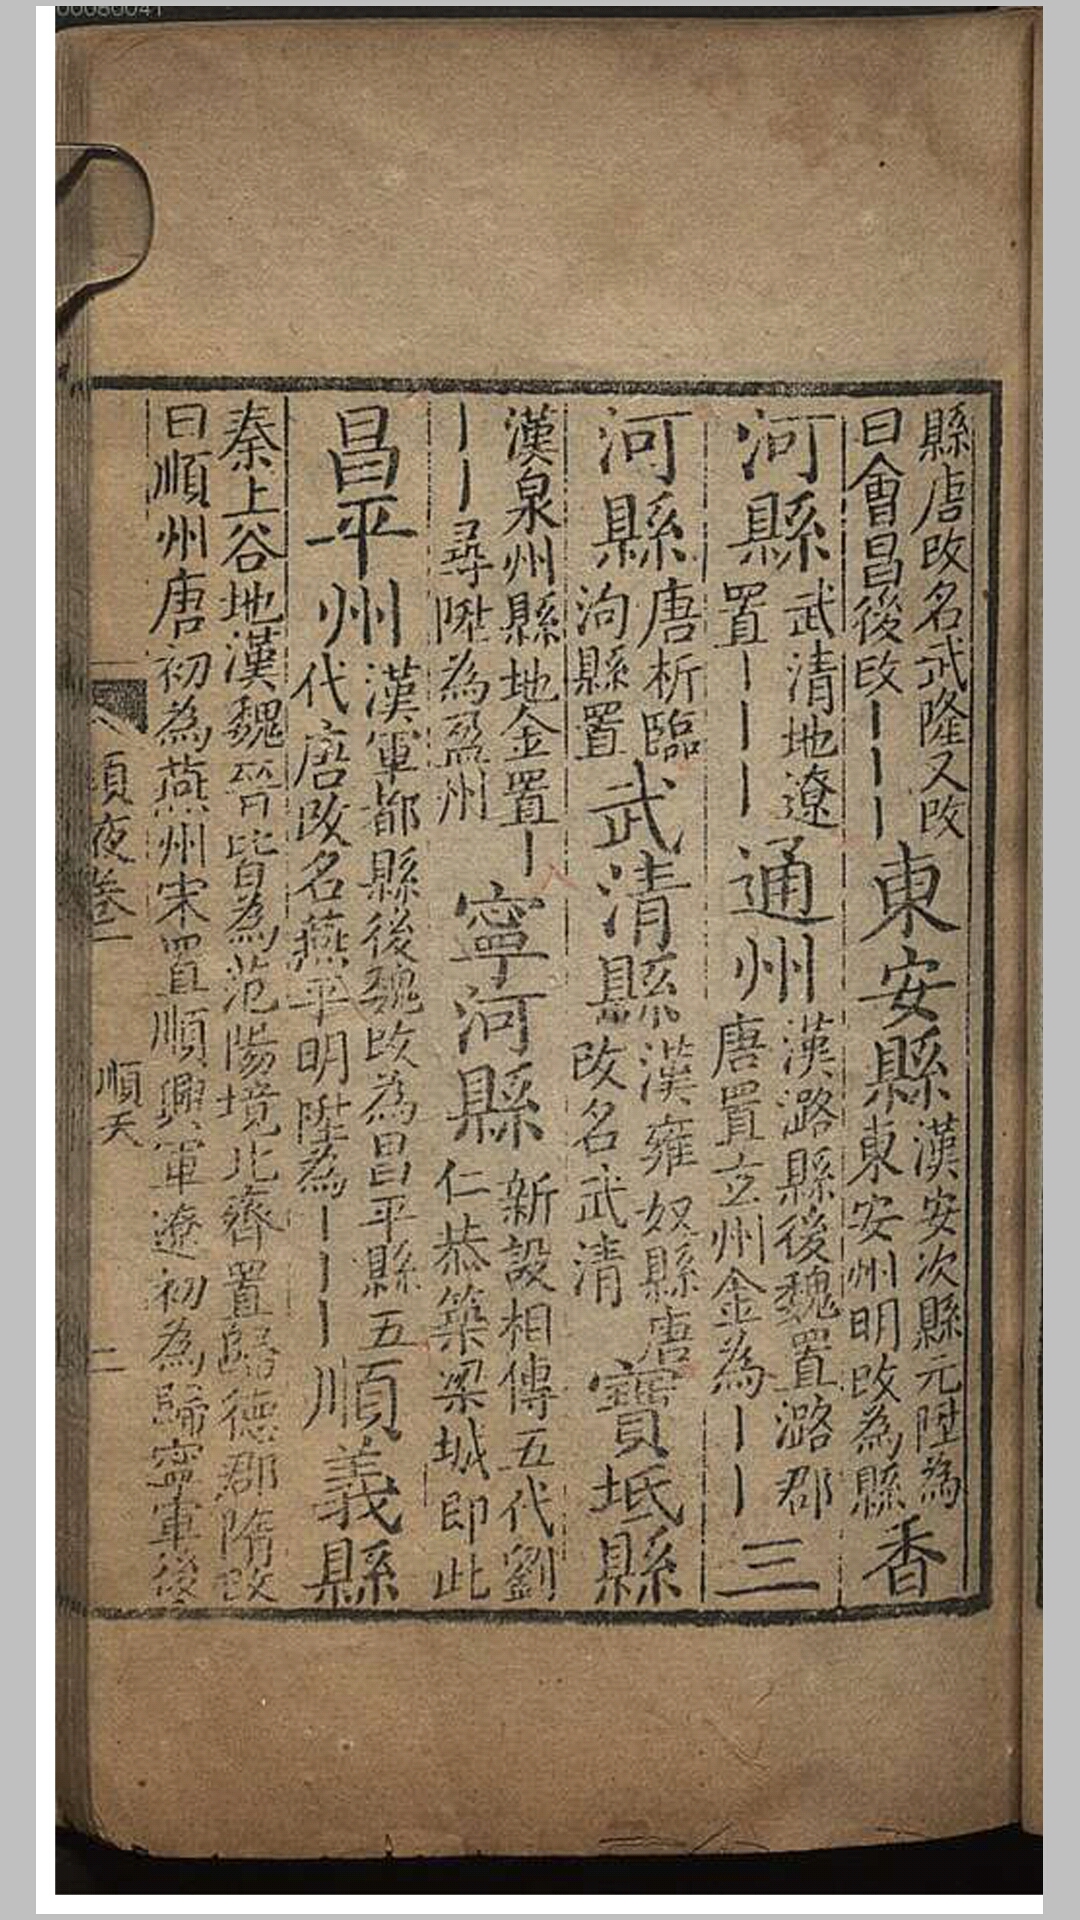 縣唐改名武隆又改
曰會昌後改｜｜｜
東安縣
漢安次縣元陞為
東安州明改為縣
香
河縣
武清地遼
置｜｜｜
通州
漢潞縣後魏置潞郡
唐置玄州金為｜｜
三
河縣
唐析臨
泃縣置
武清縣
漢雍奴縣唐
改名武清
寶坻縣
漢泉州縣地金置｜
｜｜尋陞為盈州
寧河縣
新設相傳五代劉
仁恭築梁城即此
昌平州
漢軍都縣後魏改為昌平縣五
代唐改名燕平明陞為｜｜｜
順義縣
秦上谷地漢魏晉皆為范陽境北齊置歸德郡隋改
曰順州唐初為燕州宋置順興軍遼初為歸寧軍後
須夜卷一
順天
二